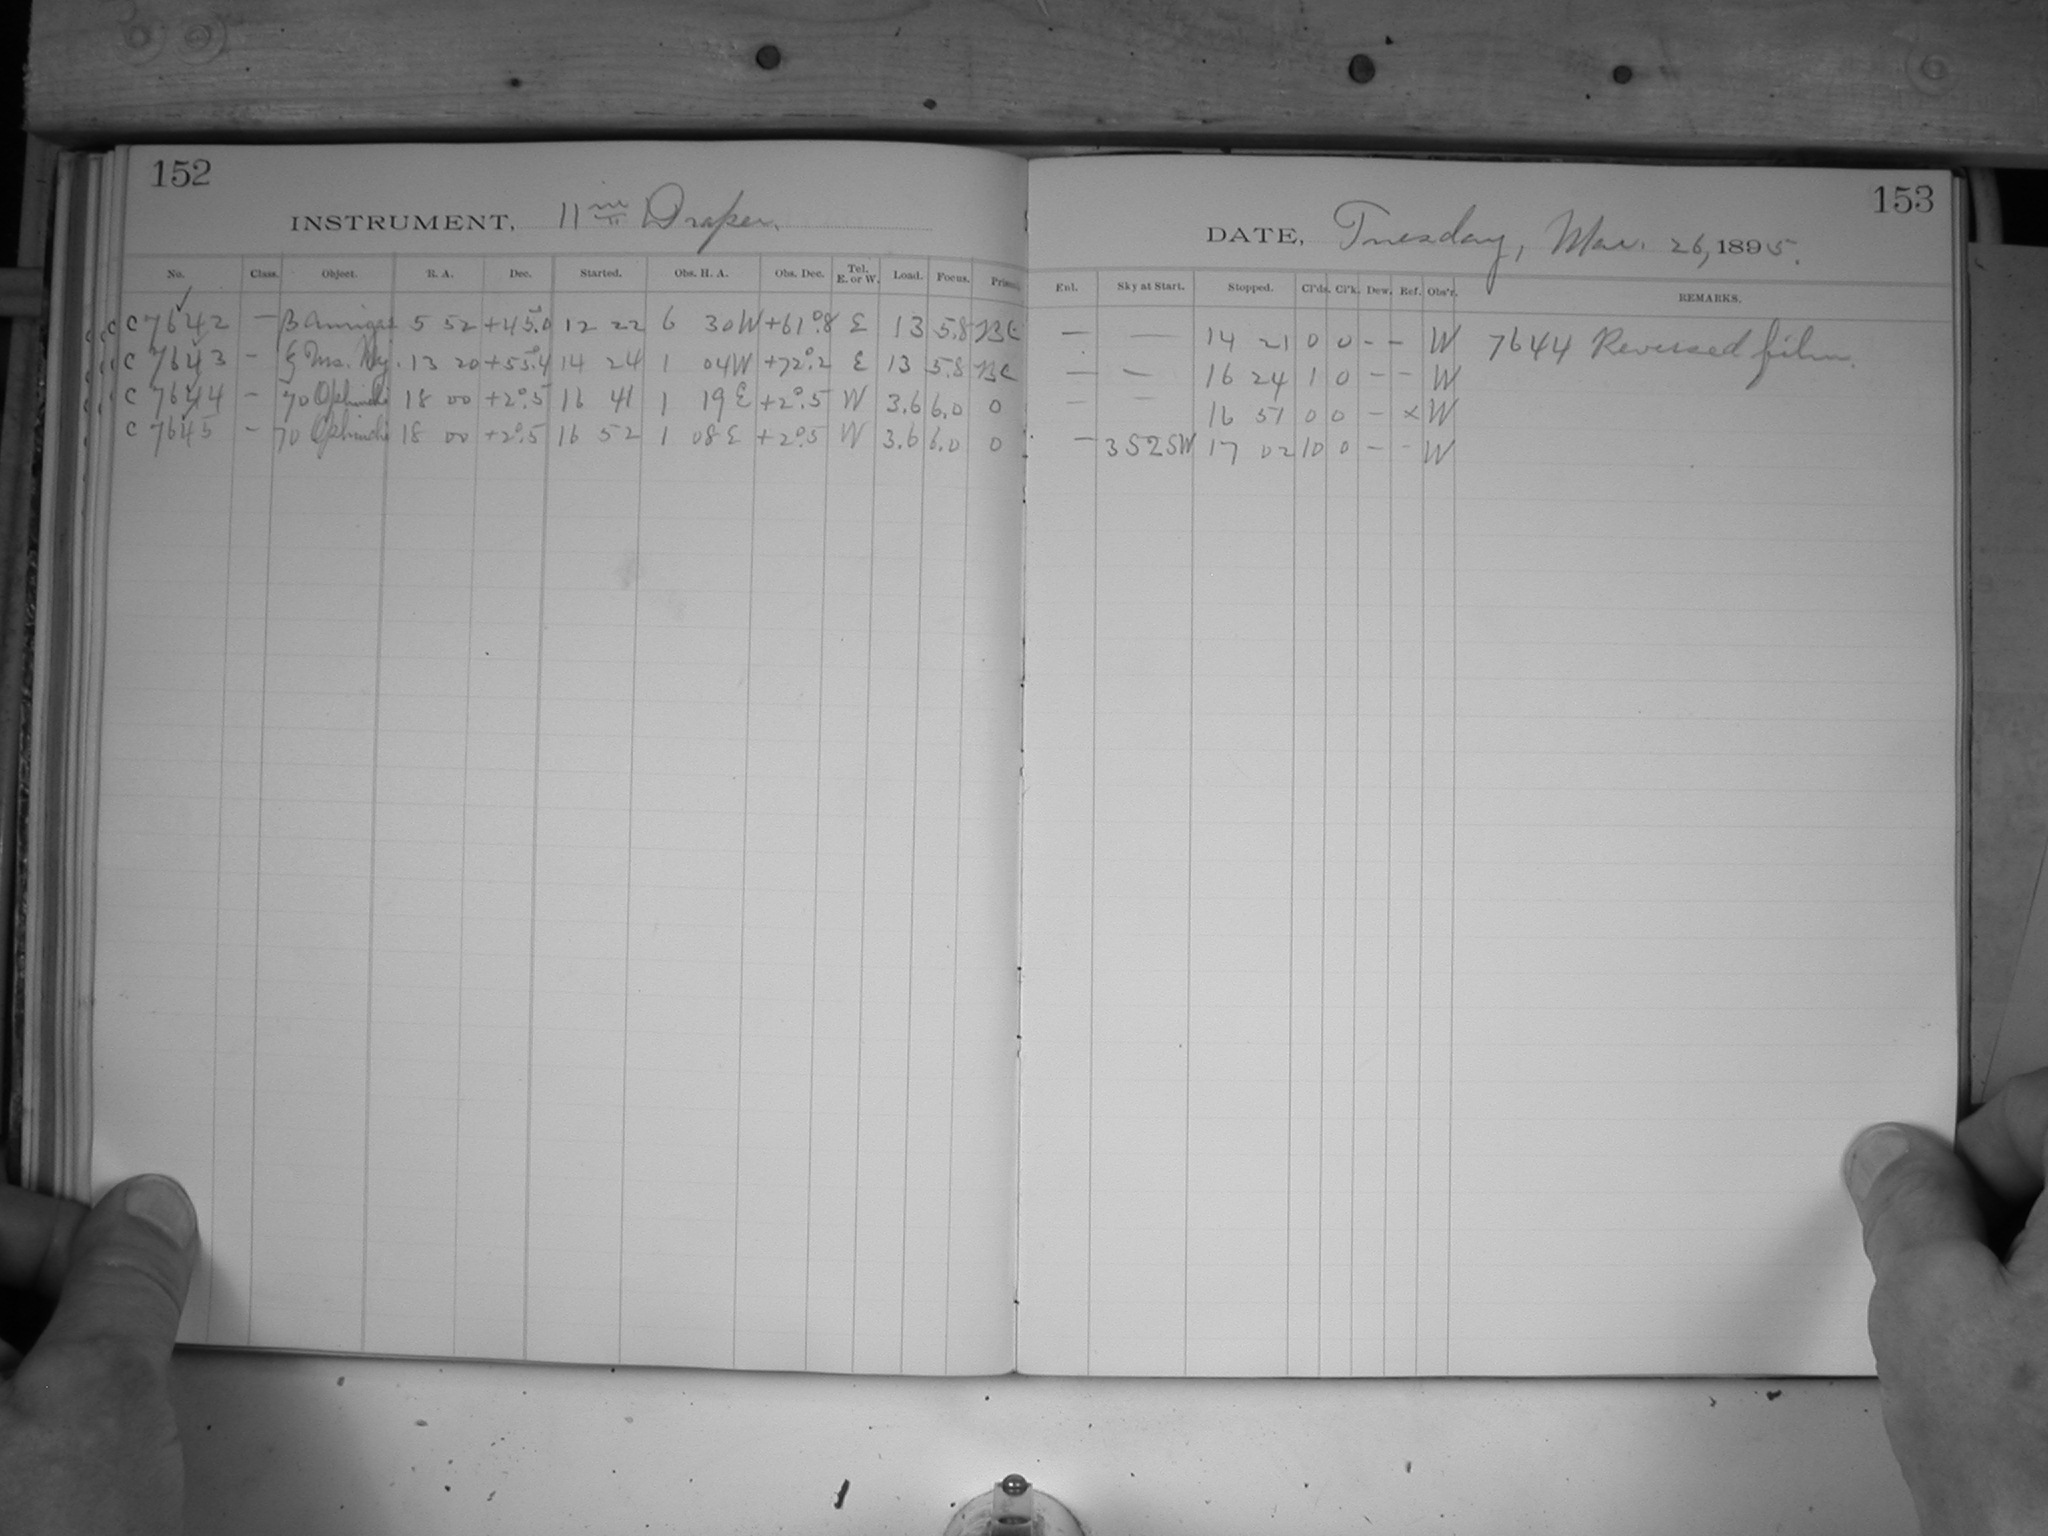 152
INSTRUMENT, 11 in Draper.
No. Class. Object. R. A. Dec. Started. Obs. H. A. Obs. Dec. Tel. E. or W. Load. Focus.
C 7642 — β Aurigae 5 52 +45.0 12 22 6 30W +61°.8 E 13 5.8
C 7643 - 13 20 +55.4 14 24 1 04W +72°.2 E 13 5.8
C 7644 - 70 Ophiuchi 18 00 +2°.5 16 41 1 19 E +2°.5 W 3.6 6.0 0
C 7645 - 70 Ophiuchi 18 00 +2°.5 16 52 1 08 E +2°.5 W 3.6 6.0 0
153
DATE, Tuesday, Mar. 26, 1895.
Enl. Sky at Start. Stopped. Cl'ds. Cl'k. Dew. Ref. Obs'r. REMARKS.
— — 14 21 0 0 - - W 7644 Reversed film.
— — 16 24 1 0 - - W
— — 16 51 0 0 - x W
— 3S2SW 17 02 10 0 - - W